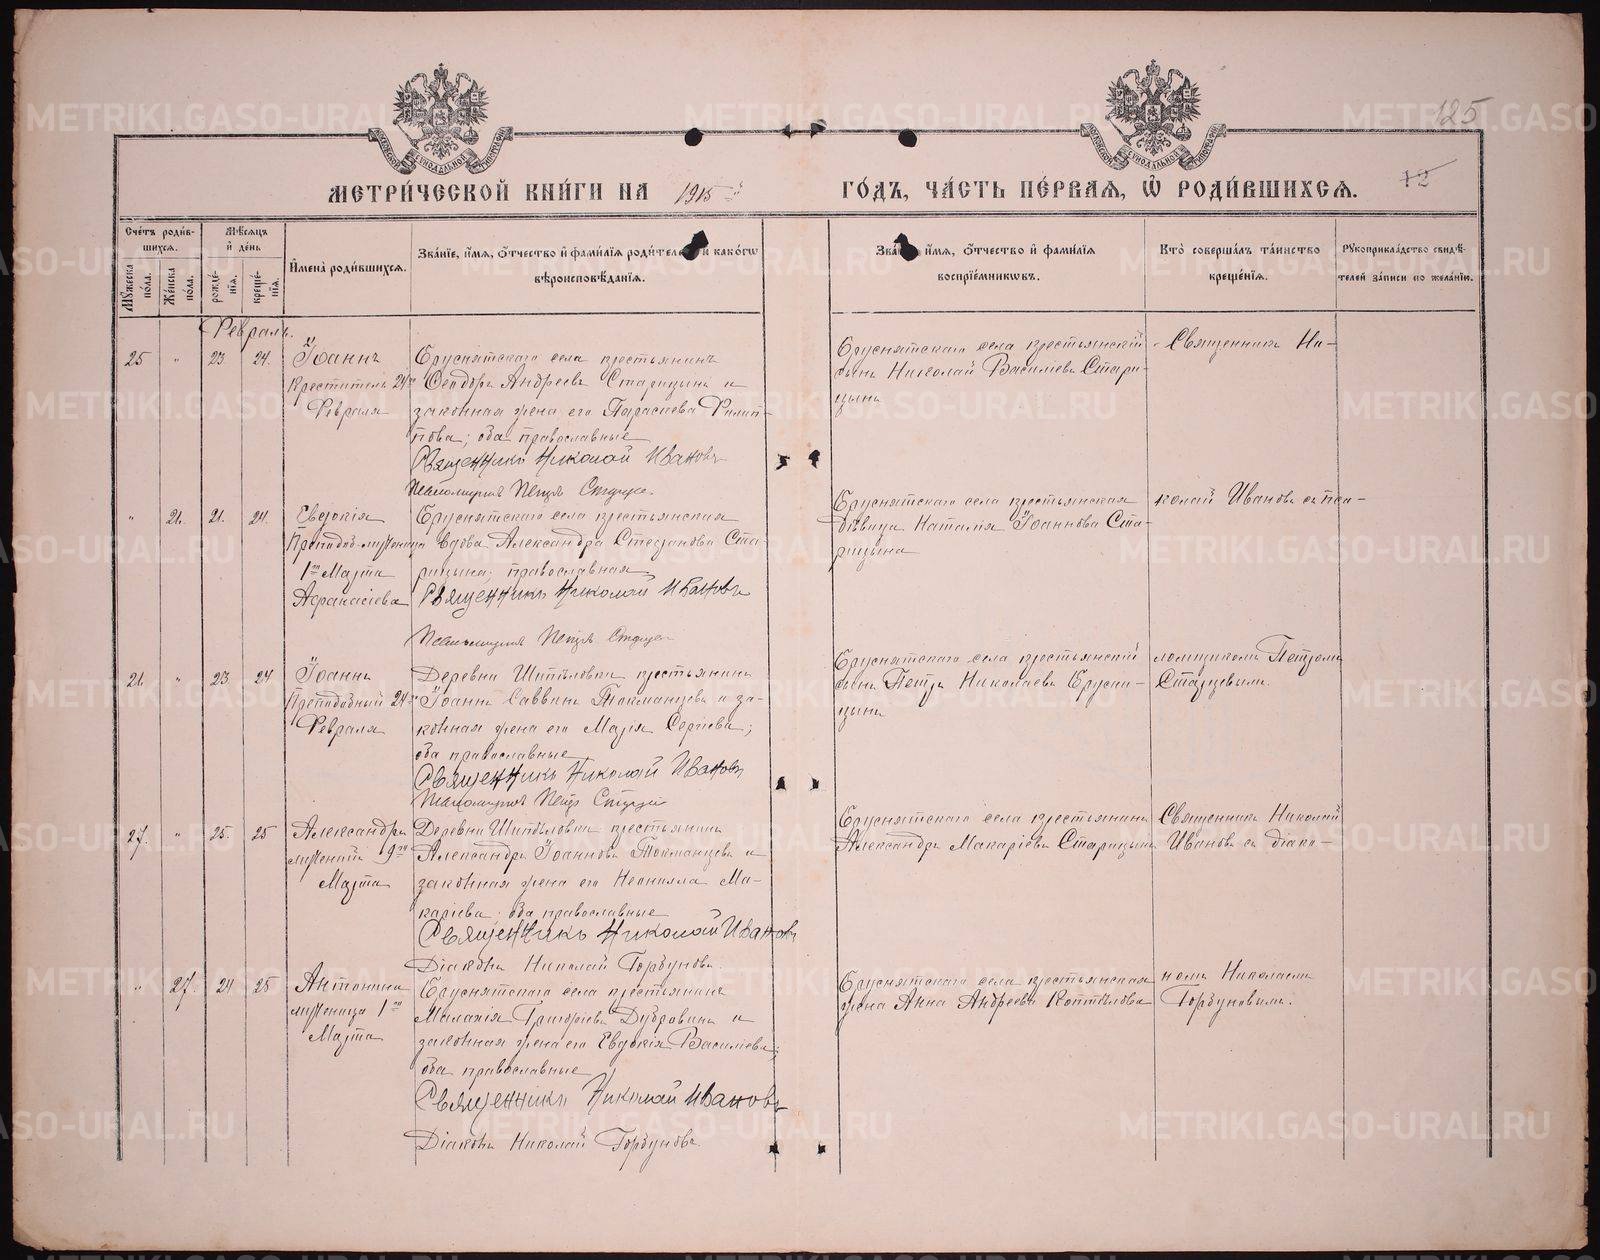 125
12
МЕТРИ́ЧЕСКОЙ КНИ́ГИ НА 1915й ГО́ДЪ, ЧА́СТЬ ПЕ́РВАЯ, Ѡ РОДИ́ВШИХСЯ.
Сче́тъ роди́вшихся.
Му́жеска по́ла.
Же́нска по́ла.
Мѣ́сяцъ и де́нь
рожде́нія.
креще́нія.
И҆мена̀ роди́вшихся.
Зва́нїе, и҆́мя, ѻ҆́тчество и҆ фами́лїя роди́телей, и҆ како́гѡ
вѣроисповѣ́данїя.
Зва́нїе, и҆́мя, ѻ҆́тчество и҆ фами́лїя
воспрїе́мникѡвъ.
Кто̀ соверша́лъ та́инство
креще́нїя.
Рукоприкла́дство свидѣ́-
телей за́писи по жела́нїю.
Февраль.
25 " 23 24.
Іоаннъ
Креститель 24го
Февраля
Бруснятскаго села крестьянинъ
Ѳеодоръ Андреевъ Старицынъ и
законная жена его Параскева Филип-
пова; оба православные
Священникъ Николай Ивановъ
Псаломщикъ Петръ Старцевъ
Бруснятскаго села крестьянскій
сынъ Николай Василіевъ Стари-
цынъ
Священникъ Ни-
" 26. 21. 24.
Евдокія
Преподоб-мученица
1го Марта
Афанасіева
Бруснятскаго села крестьянская
вдова Александра Стефанова Ста-
рицына; православная
Священникъ Николай Ивановъ
Псаломщикъ Петръ Старцевъ
Бруснятскаго села крестьянская
дѣвица Наталія Іоаннова Ста-
рицына
колай Ивановъ съ пса-
26. " 23 24
Іоаннъ
Преподобный 24го
Февраля
Деревни Шипѣловки крестьянинъ
Іоаннъ Саввинъ Токманцевъ и за-
конная жена его Марія Сергіева;
оба православные
Священникъ Николай Ивановъ
Псаломщикъ Петръ Старцевъ
Бруснятскаго села крестьянскій
сынъ Петръ Николаевъ Брусни-
цынъ
ломщикомъ Петромъ
Старцевымъ.
27. " 25. 25
Александръ
мученикъ 9го
Марта
Деревни Шипѣловки крестьянинъ
Александръ Іоанновъ Токманцевъ и
законная жена его Неонилла Ма-
каріева; оба православные
Священникъ Николай Ивановъ
Діаконъ Николай Горбуновъ.
Бруснятскаго села крестьянинъ
Александръ Макаріевъ Старицынъ
Священникъ Николай
Ивановъ съ діако-
" 27. 24 25
Антонина
мученица 1го
Марта
Бруснятскаго села крестьянинъ
Малахія Григоріевъ Дубровинъ и
законная жена его Евдокія Василіева;
оба православные
Священникъ Николай Ивановъ
Діаконъ Николай Горбуновъ.
Бруснятскаго села крестьянская
жена Анна Андреева Коптѣлова
номъ Николаемъ
Горбуновымъ.